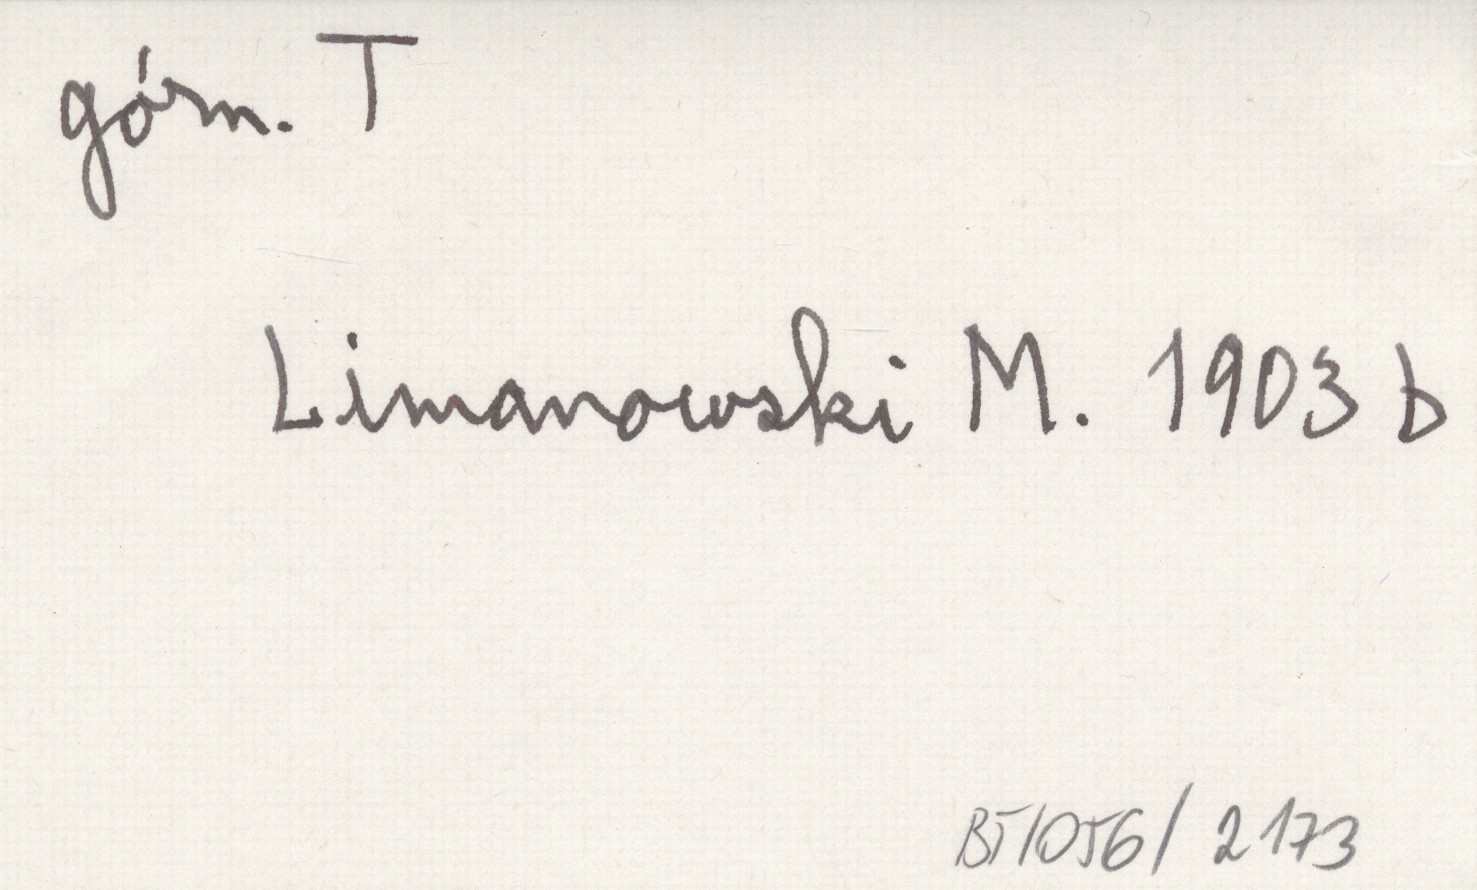 górn. T
Limanowski M. 1903 b
BT/056/2173